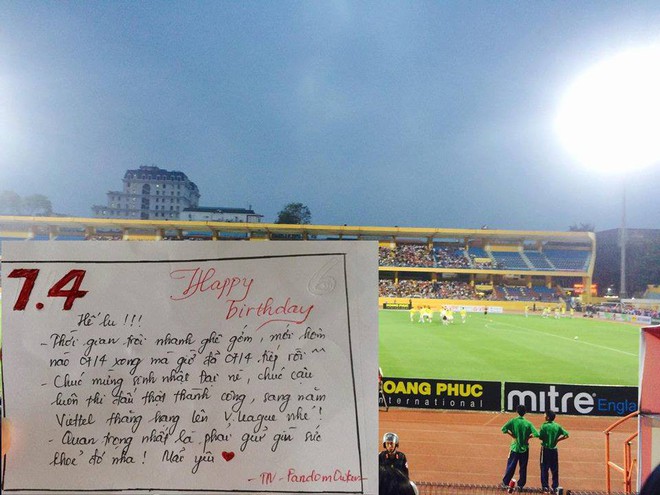 7.4
Happy
birthday
Hế lu !!!
- Thời gian trôi nhanh ghê gớm, mới hôm
nào 07/4 xong mà giờ đã 07/4 tiếp rồi ^^
- Chúc mừng sinh nhật trai nè, chúc cậu
luôn thi đấu thật thành công, sang năm
Viettel thăng hạng lên V.league nhé!
- Quan trọng nhất là phải giữ gìn sức
khoẻ đó nha! Mãi yêu ♥
- TN -
OANG PHUC
International
mitre
Engla